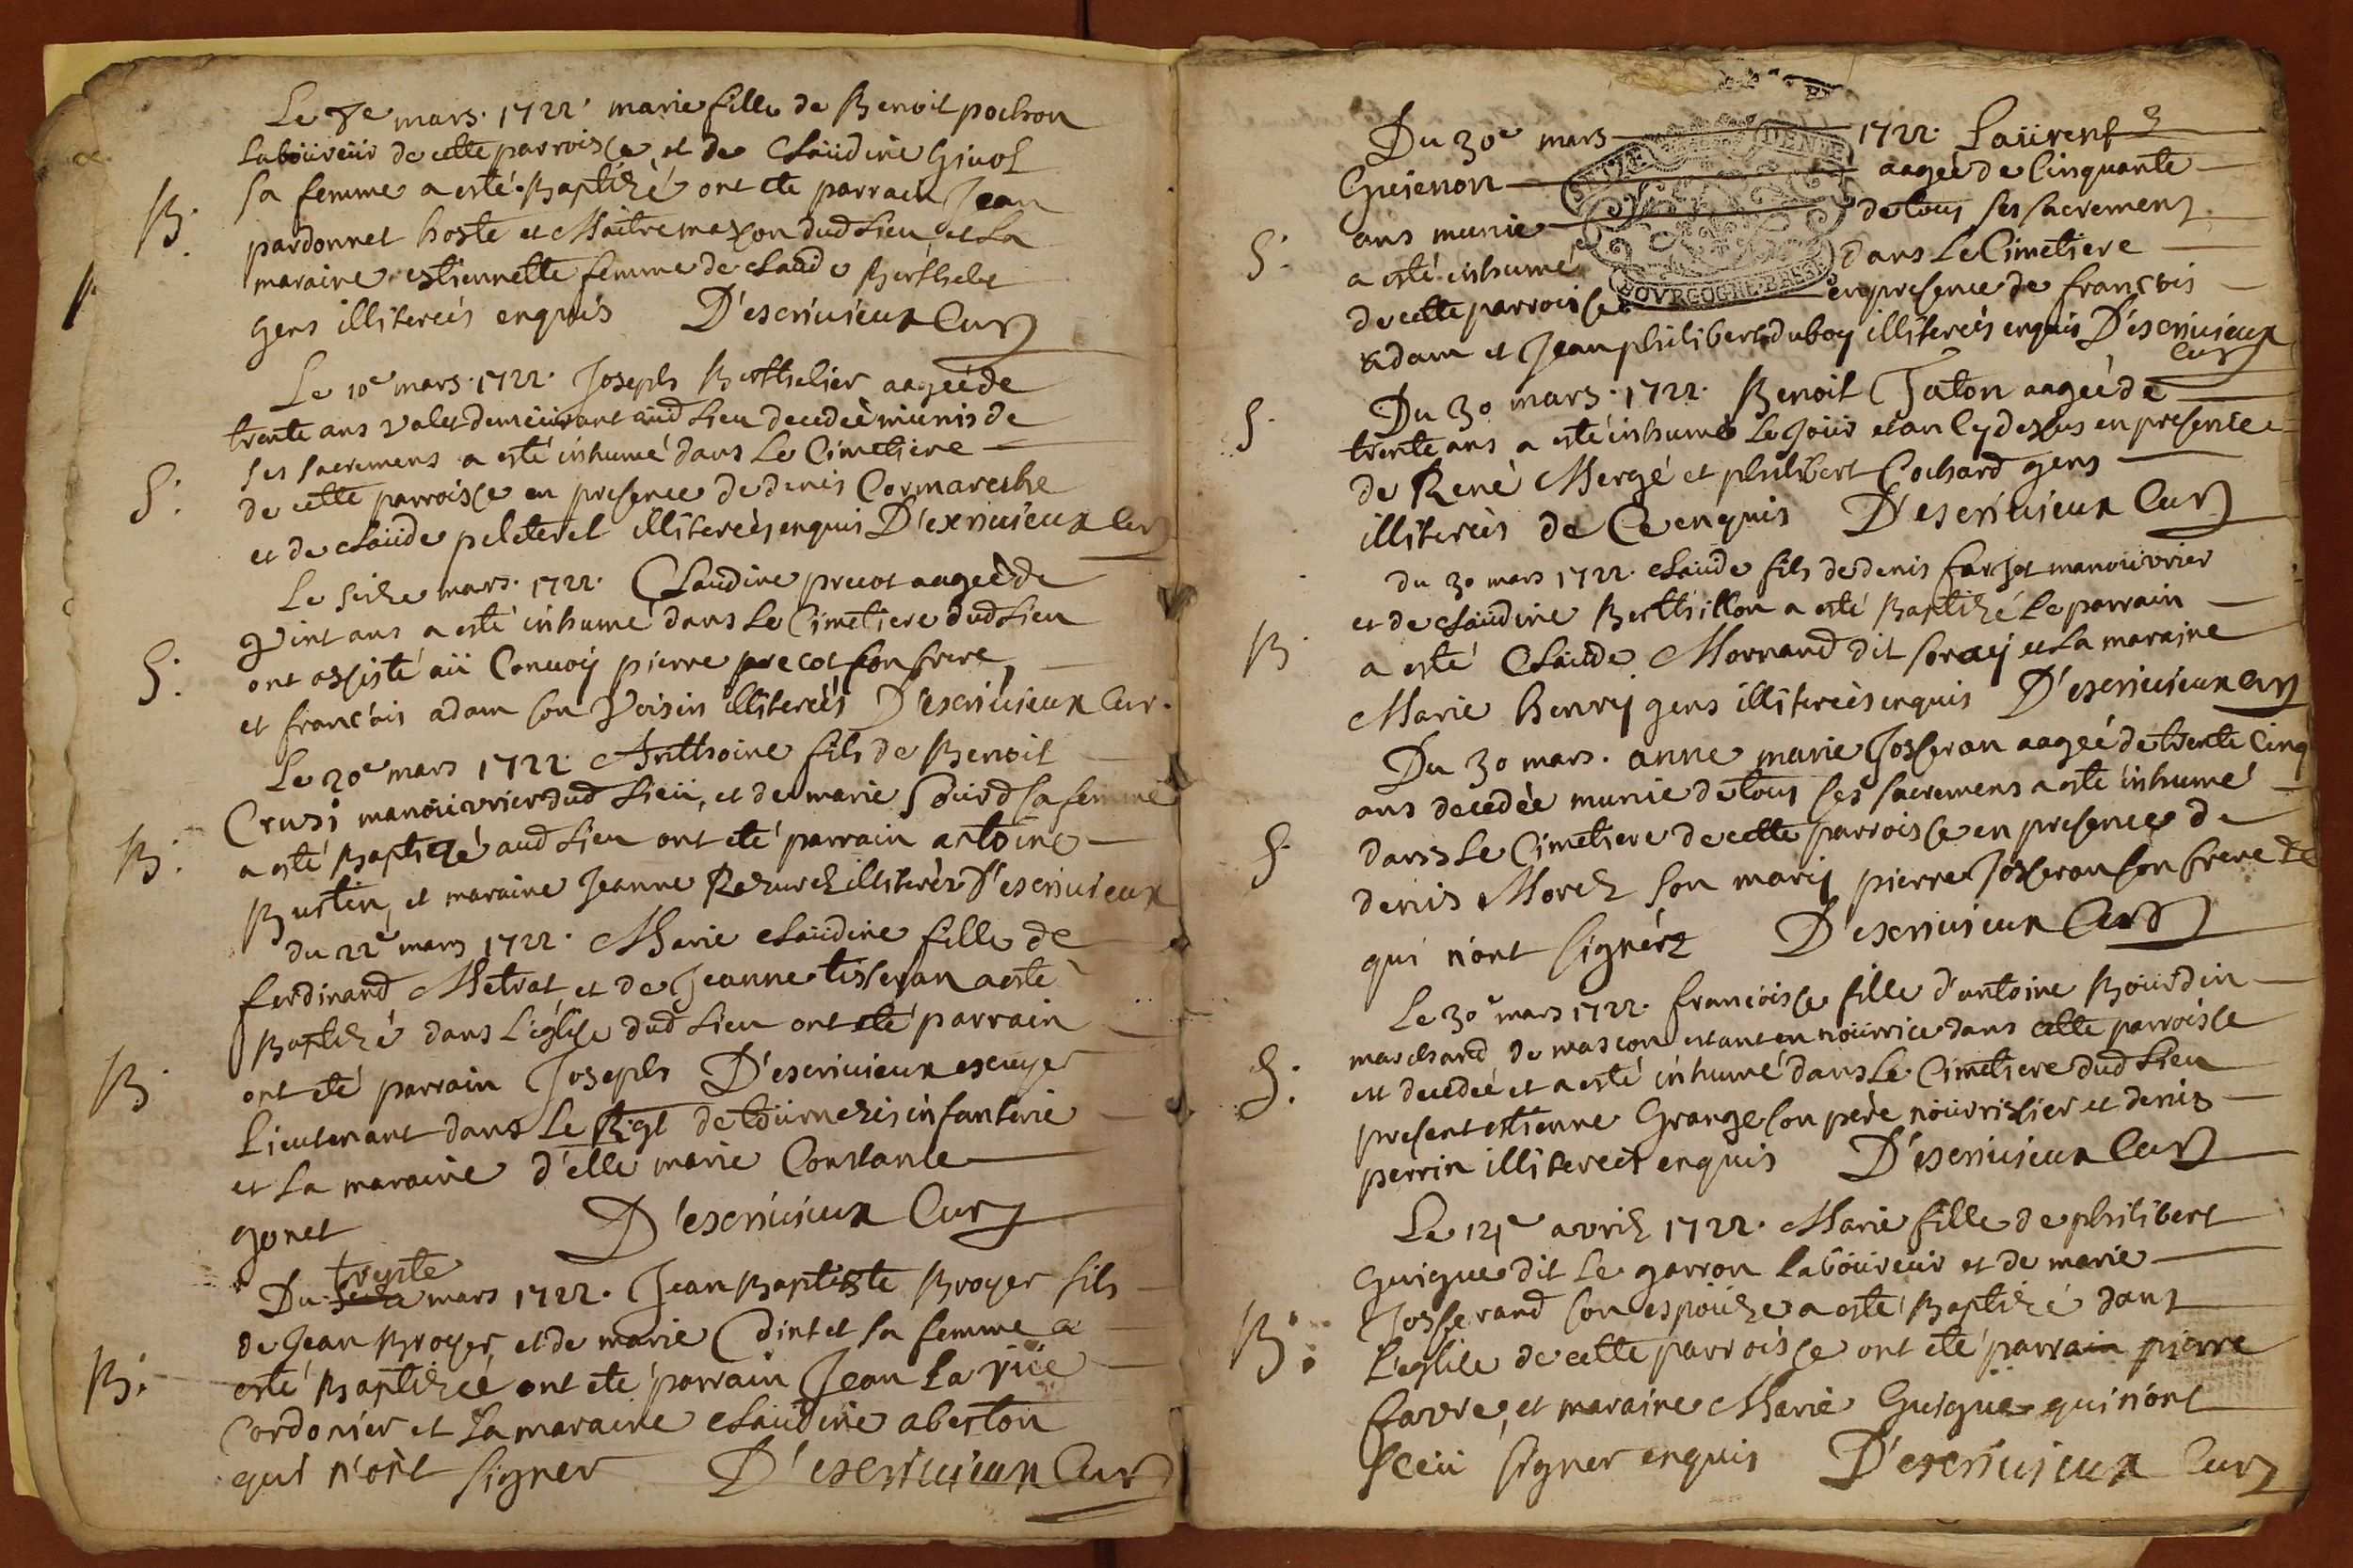 Le 8e mars. 1722 marie fille de Benoit pochon
laboureur de cette parroisse, et de Claudine Givol
B. sa femme a esté Baptizé ont ete parrain Jean
pardonnet hoste et Maitre masson dud lieu et la
maraine estiennette femme de claude Berthelet
gens illiterés enquis D'escrivieux Cur
Le 10e mars. 1722. Joseph Berthelier aageé de
trente ans valet demeurant aud lieu decedeé munis de
S. ses sacremens a esté inhumé dans le Cimetiere
de cette parroisse en presence de denis Cormareche
et de claude peleteret illitereés enquis D'escrivieux Cur
Le seize mars. 1722. Claudine precot aageé de
vint ans a esté inhumé dans le Cimetiere dud lieu
S. ont assisté au Convoy pierre precot son frere,
et francois adam son voisin illitereés D'escrivieux Cur.
Le 20e mars 1722. Anthoine fils de Benoit
Crusi manouvrier dud lieu, et de marie Sourd sa femme
B. a esté Baptizé aud lieu ont eté parrain antoine
Burtin, et maraine Jeanne illiterés D'escrivieux
du 22e mars 1722. Marie claudine fille de
ferdinand Metrat, et de Jeanne tisseran a esté
Baptizé dans L'eglise dud lieu ont eté parrain
B. ont eté parrain Joseph D'escrivieux escuyer
Lieutenant dans Le Rgt de tournezis infanterie
et la maraine d'elle marie Constance
gonet D'escrivieux Cur
trente
Du seize mars 1722. Jean Baptiste Broyer fils
de Jean Broyer, et de marie Cdintet sa femme a
B. esté Baptizeé ont eté parrain Jean La rüe
Cordonier et La maraine claudine abeston
qui n'ont signer D'escrivieux Cur
Du 30e mars 1722. Laurent
Guienon aageé de Cinquante
ans munie de tous ses sacremens
S. a esté inhumé dans Le Cimetiere
de cette parroisse en presence de francois
adam et Jean philibert duboy illitereés enquis D'escrivieux
Cur
SEIZE DENIE
BOURGOGNE BRESSE
Du 30 mars. 1722. Benoit Taton aageé de
S. trente ans a esté inhumé Le Jour et an cy dessus en presence
de René Mergé et philibert Cochard gens
illitereés de Ce enquis D'escrivieux Cur
du 30 mars 1722. claude fils de denis farjot manouvrier
et de claudine Berthillon a esté Baptizé Le parrain
B a esté Claude Mornand dit soray et La maraine
Marie henry gens illitereés enquis D'escrivieux Cur
Du 30 mars. anne marie Josseran aageé de trente Cinq
ans decedée munie de tous ses sacremens a esté inhumé
S. dans Le Cimetiere de cette parroisse en presence de
denis Morel son mary pierre Josseran son frere
qui n'ont signér D'escrivieux Cur
Le 30 mars 1722. francoisse fille d'antoine Bourdin
marchand de mascon estant en nourrice dans cette parroisse
S. est decedeé et a esté inhumé dans Le Cimetiere dud lieu
present estienne Grange son pere nourrissier et denis
perrin illitereés enquis D'escrivieux Cur
Le 12e avril 1722. Marie fille de philibert
Guigue dit Le garron laboureur et de marie
Josserand son espouze a esté Baptizé dans
B. L'eglise de cette parroisse ont eté parrain pierre
favre, et maraine Marie Guigue qui n'ont
sceu signer enquis D'escrivieux Cur